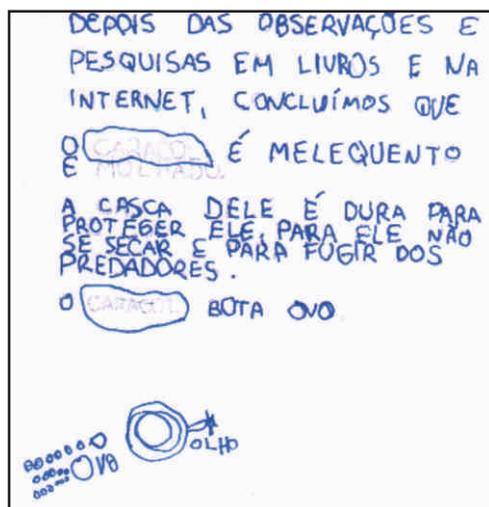 DEPOIS DAS OBSERVAÇÕES E
PESQUISAS EM LIVROS E NA
INTERNET, CONCLUÍMOS QUE
O CARACOL É MELEQUENTO
E MOLHADO.
A CASCA DELE É DURA PARA
PROTEGER ELE, PARA ELE NÃO
SE SECAR E PARA FUGIR DOS
PREDADORES.
O CARACOL BOTA OVO
OLHO
OVO